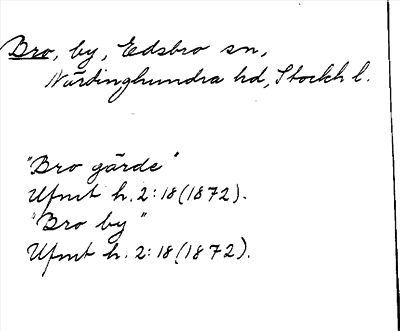 Bro, by, Edsbro sn,
Närdinghundra hd, Stockh l.
"Bro gärde"
Ufmt h. 2:18 (1872).
"Bro by"
Ufmt h. 2:18 (1872).